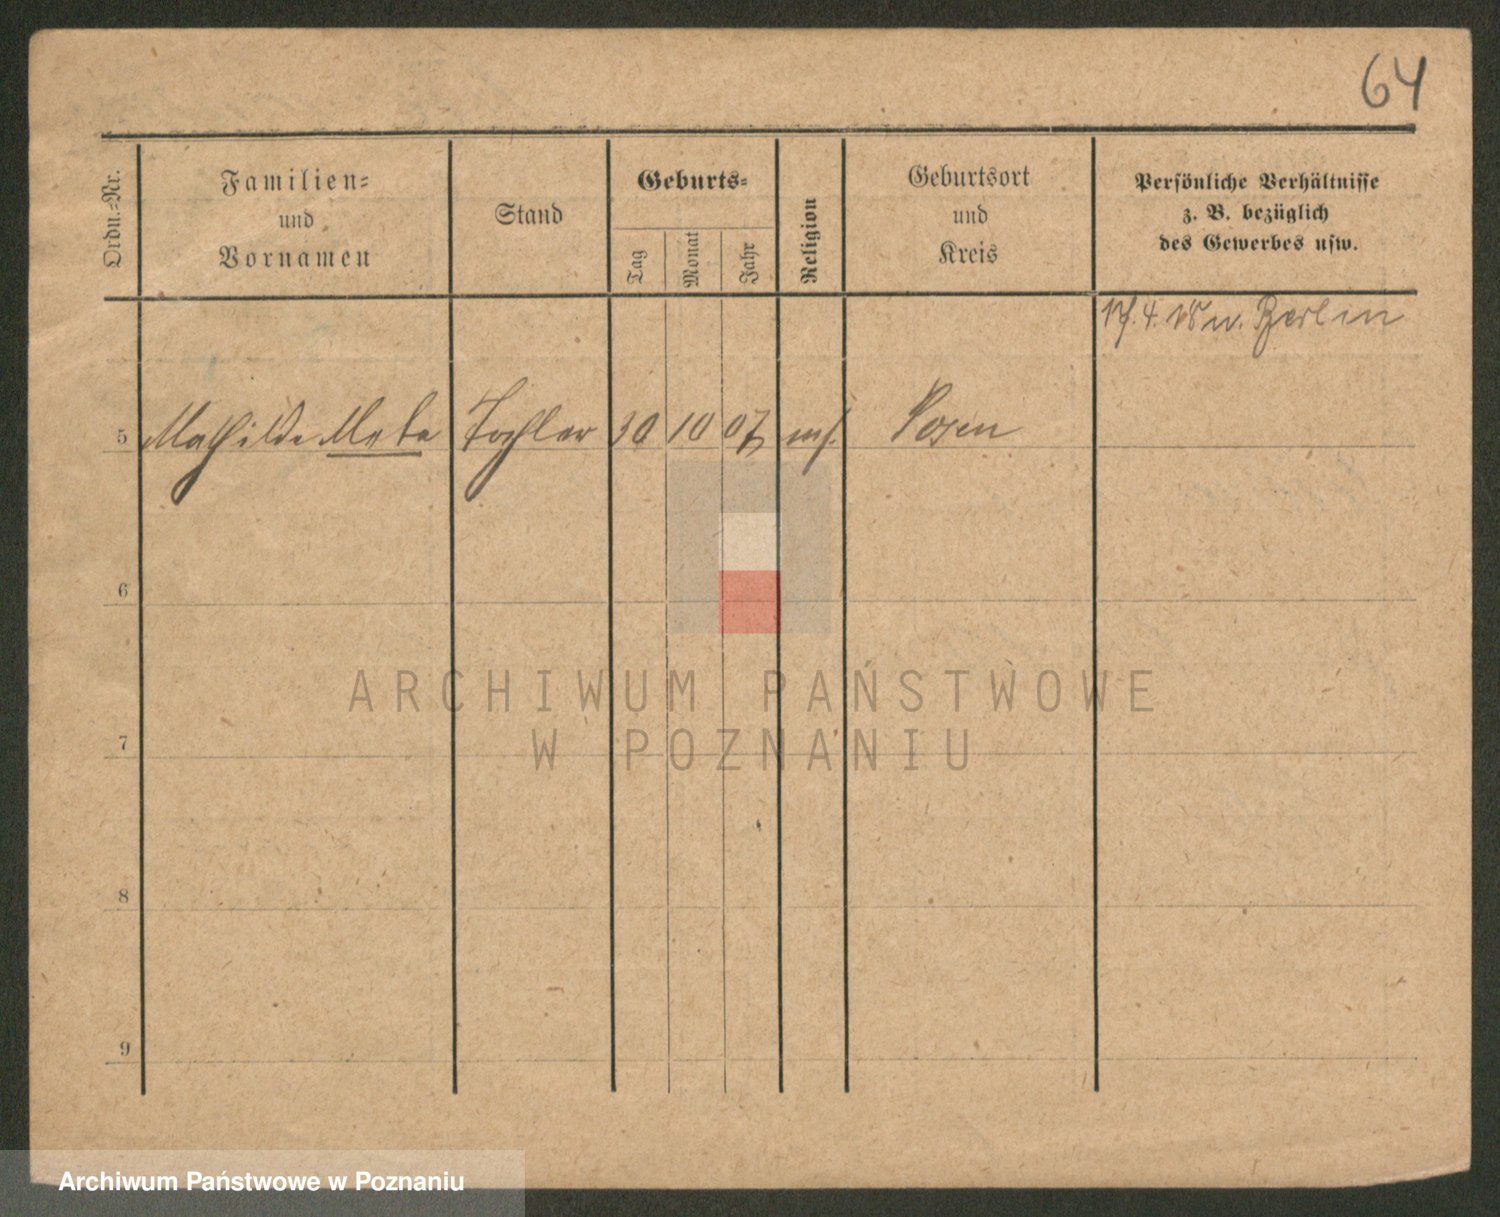 64
Ordn.-Nr.
Familien-
und
Vornamen
Stand
Geburts-
Tag
Monat
Jahr
Religion
Geburtsort
und
Kreis
Persönliche Verhältnisse
z. B. bezüglich
des Gewerbes usw.
4. 18 n. Berlin
5 Mathilde Meta Tochter 30 10 07 Posen
6
7
8
9
ARCHIWUM PAŃSTWOWE
W POZNANIU
Archiwum Państwowe w Poznaniu